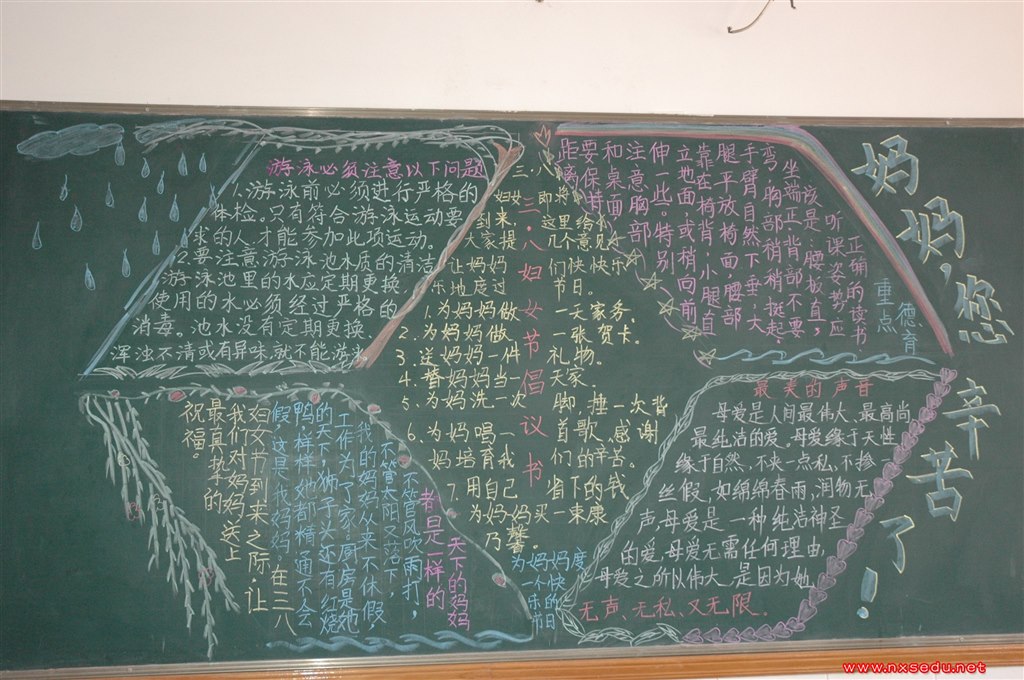 妈妈,您辛苦了!
游泳必须注意以下问题
1.游泳前必须进行严格的
体检。只有符合游泳运动要
求的人,才能参加此项运动。
2.要注意游泳池水质的清洁
游泳池里的水应定期更换
使用的水必须经过严格的
消毒。池水没有定期更换
浑浊不清或有异味,就不能游泳
三·八妇女节倡议书
三·八
妇女 即将
到来, 这里给
大家提 几个意见
让妈妈 们快快乐
乐地度过 节日。
1.为妈妈做 一天家务。
2.为妈妈做 一张贺卡。
3.送妈妈一件 礼物。
4.替妈妈当一 天家.
5.为妈洗一次 脚,捶一次背
6.为妈唱一 首歌、感谢
妈培育我 们的辛苦。
7.用自己 省下的钱
为妈妈买 一束康
乃馨。
为妈妈度
一个快
乐的节
日
德育
重点
正确的读书
听课姿势应
该是:腰板直,
坐端正,背部不要
弯,胸部稍稍挺起.
手臂自然下垂,大
腿平放椅面,腰部
靠在椅背,小腿直
立地面或稍向前
伸一些。特别
注意胸部
和桌面
要保持
距离
天下的妈妈
都是一样的
不管风吹雨打,
不管太阳又落下,
我的妈妈从来不休假
工作为了家.厨房是她
的天下,狮子头还有红烧
鸭,样样她都精通不会
假,这是我妈妈.
在三八
妇女节到来之际,让
我们对妈妈送上
最真挚的
祝福。
最美的声音
母爱是人间最伟大、最高尚
最纯洁的爱。母爱缘于天性
缘于自然,不夹一点私,不掺一
丝假,如绵绵春雨,润物无
声,母爱是一种纯洁神圣
的爱,母爱无需任何理由,
母爱之所以伟大,是因为她
无声、无私、又无限.
www.nxsedu.net